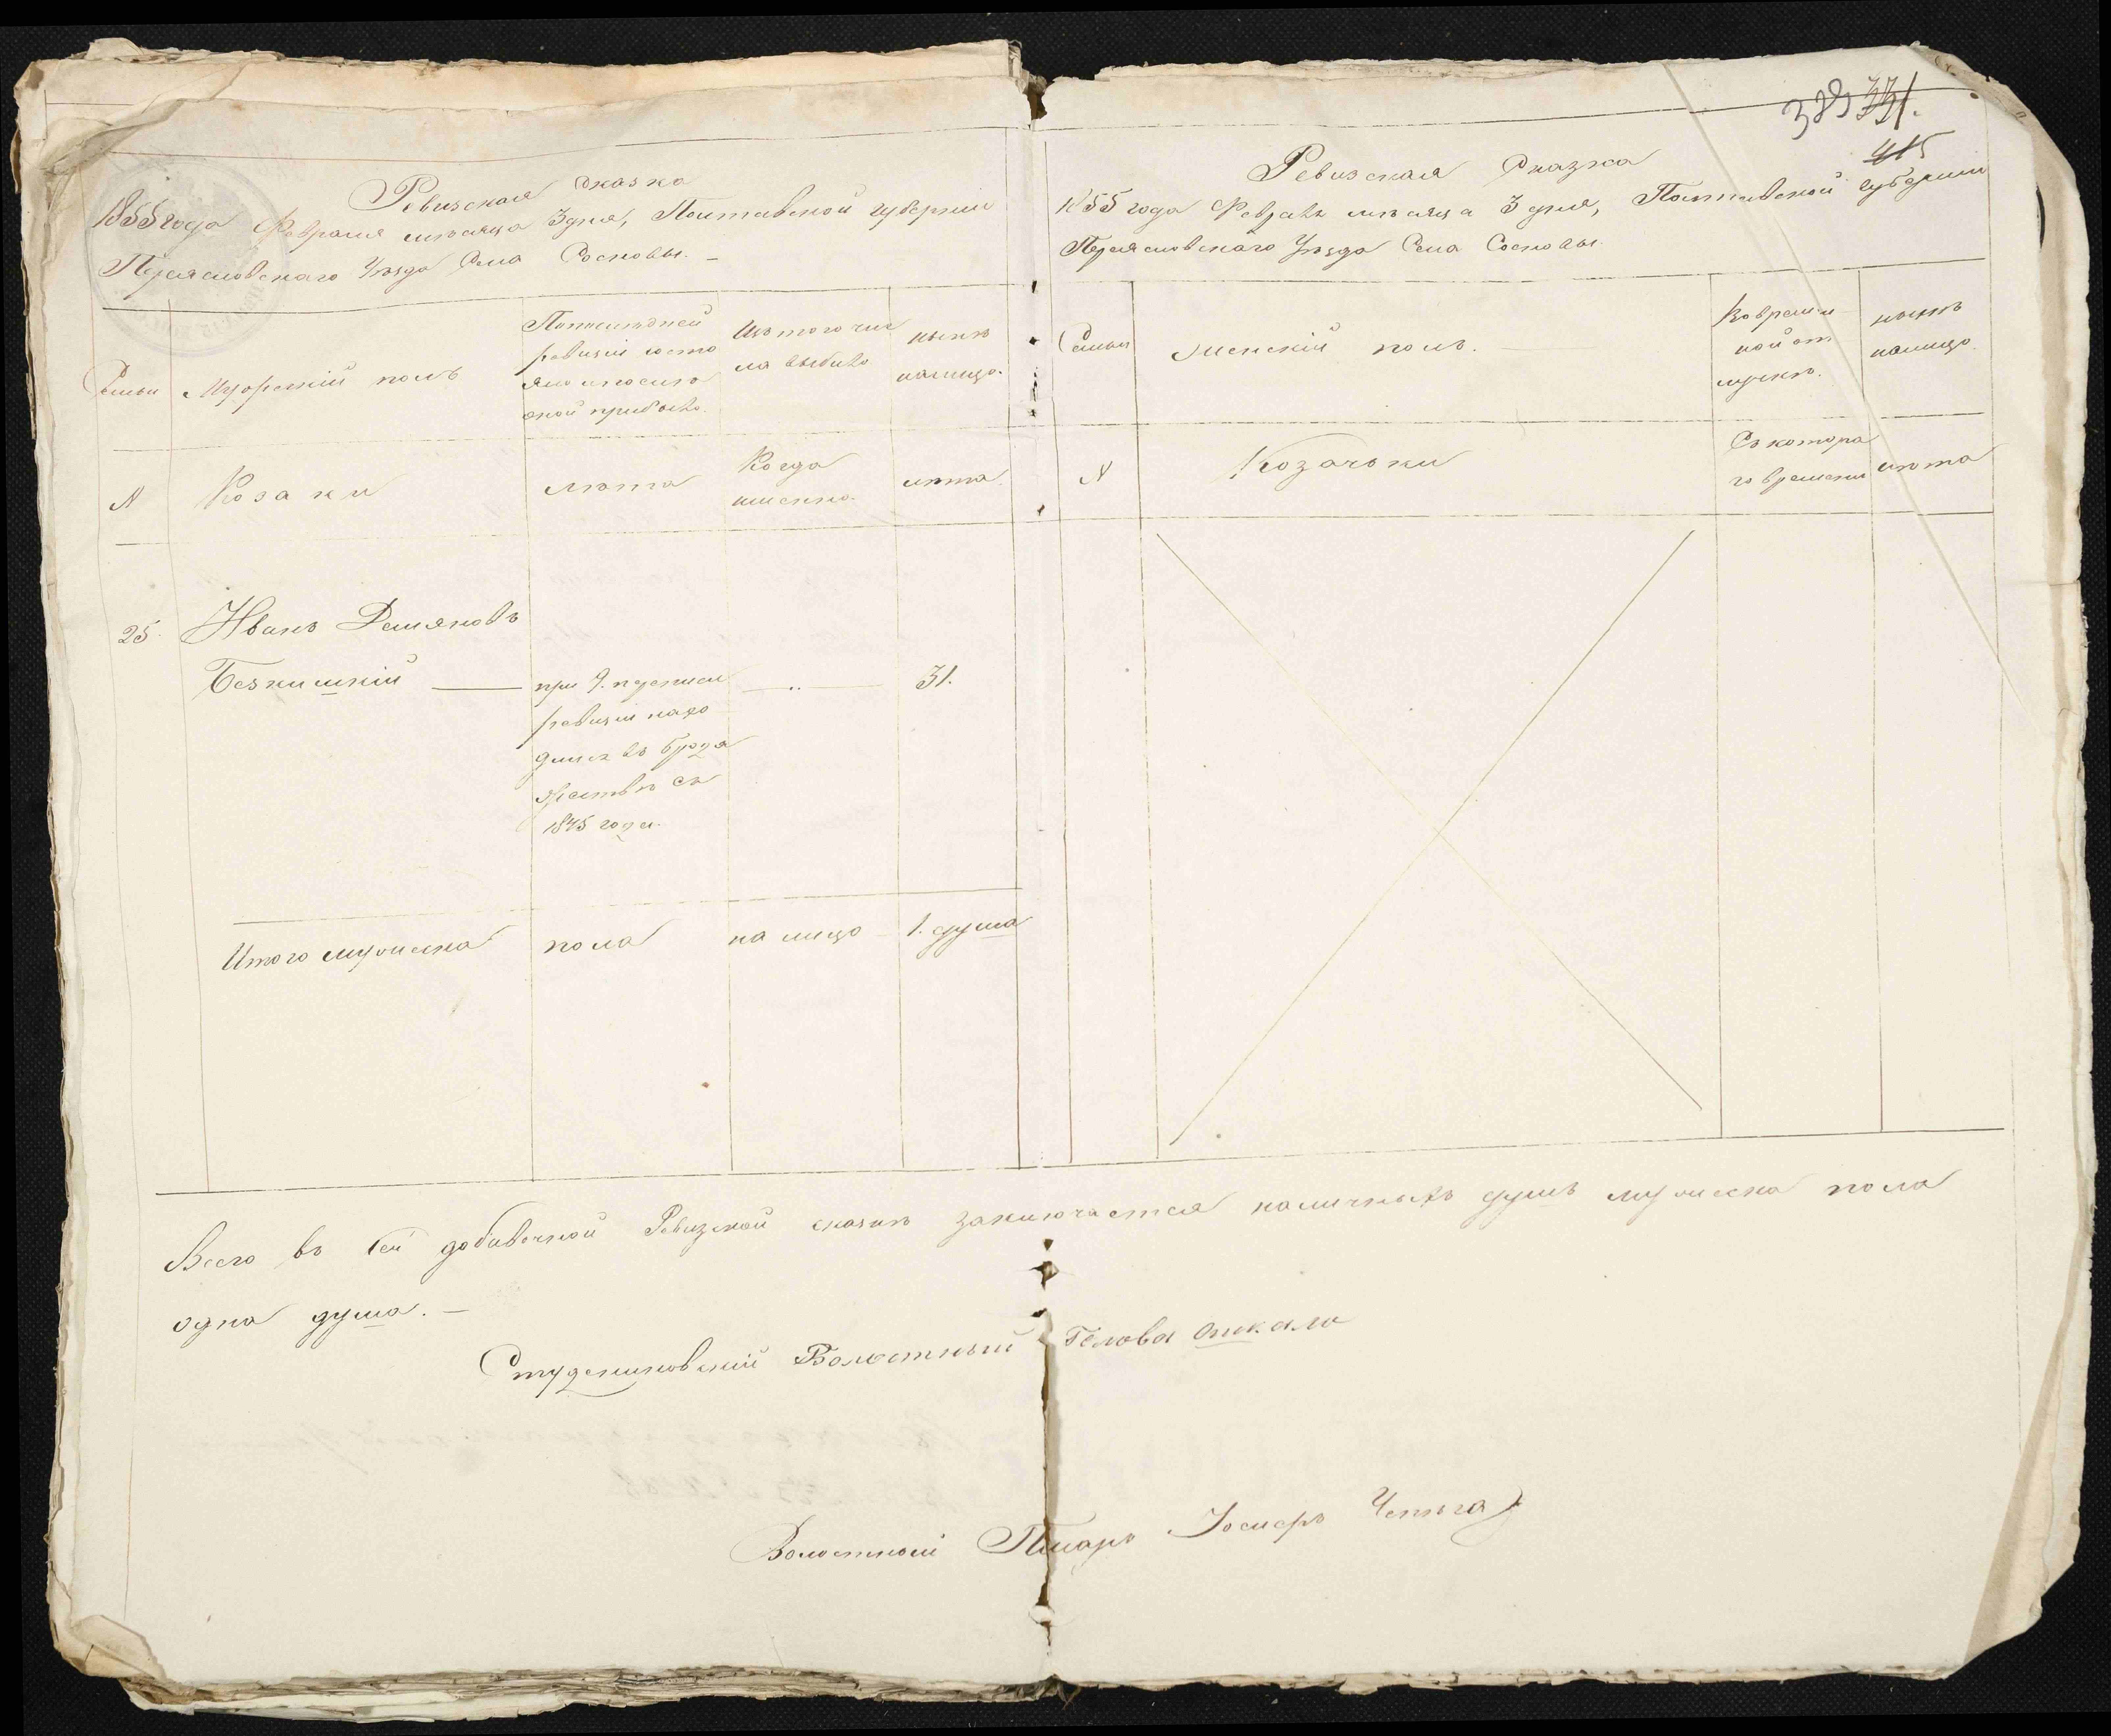 Ревизская сказка
1855 года Февраля месяца 3 дня, Полтавской губернии
Переясловскаго Уезда Села Сосновы. –
Семьи
Мужеский полъ
По последней
ревизіи состо
яло и после
оной прибыло.
Изъ того чис
ла выбыло
ныне
налицо.
N
Козаки
лета
Когда
именно.
лета.
25.
Иванъ Демяновъ
Безкишкій
при 9. переписи
ревизіи нахо
дился въ бродя
жестве съ
1845 года.
"
31.
Итого мужеска
пола
на лицо
1. душа
389 331.
415
Ревизская Сказка
1855 года Февраля месяца 3 дня, Полтавской Губерніи
Переясловскаго Уезда Села Сосновы.
Семьи
Женскій полъ.
Во времен
ной от
лучке.
ныне
налицо.
N
Козачьки
Съ котора
го времени
лета
Всего въ сей добавочной Ревизской сказке заключается наличныхъ душъ мужеска пола
одна душа. –
Студениковскій Волостный Голова
Волостный Писарь Іосифъ Чепига